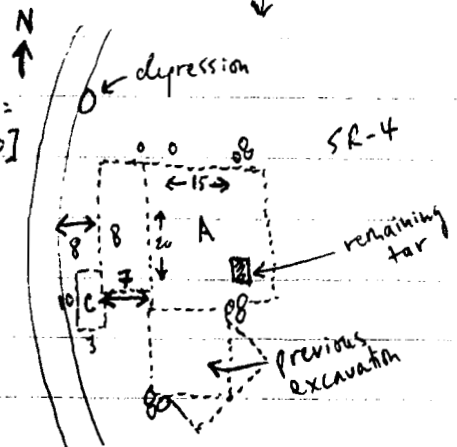 N
depression
=
]
SR-4
8
15
A
20
8
8
remaining
tar
7
10
C
3
8
previous
excavation
8